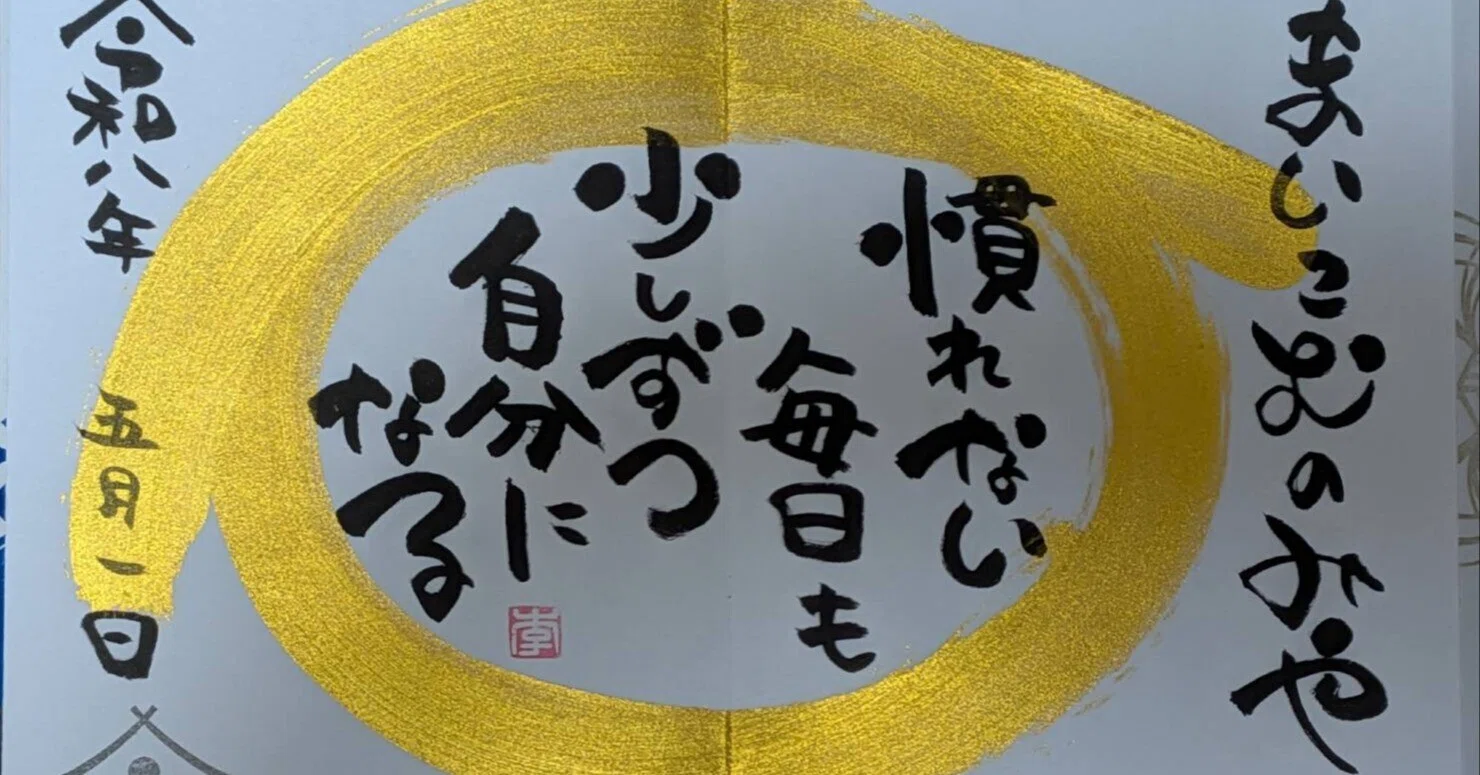 まいこおのみや
慣れない
毎日も
少しずつ
自分に
なる
令和八年 五月一日